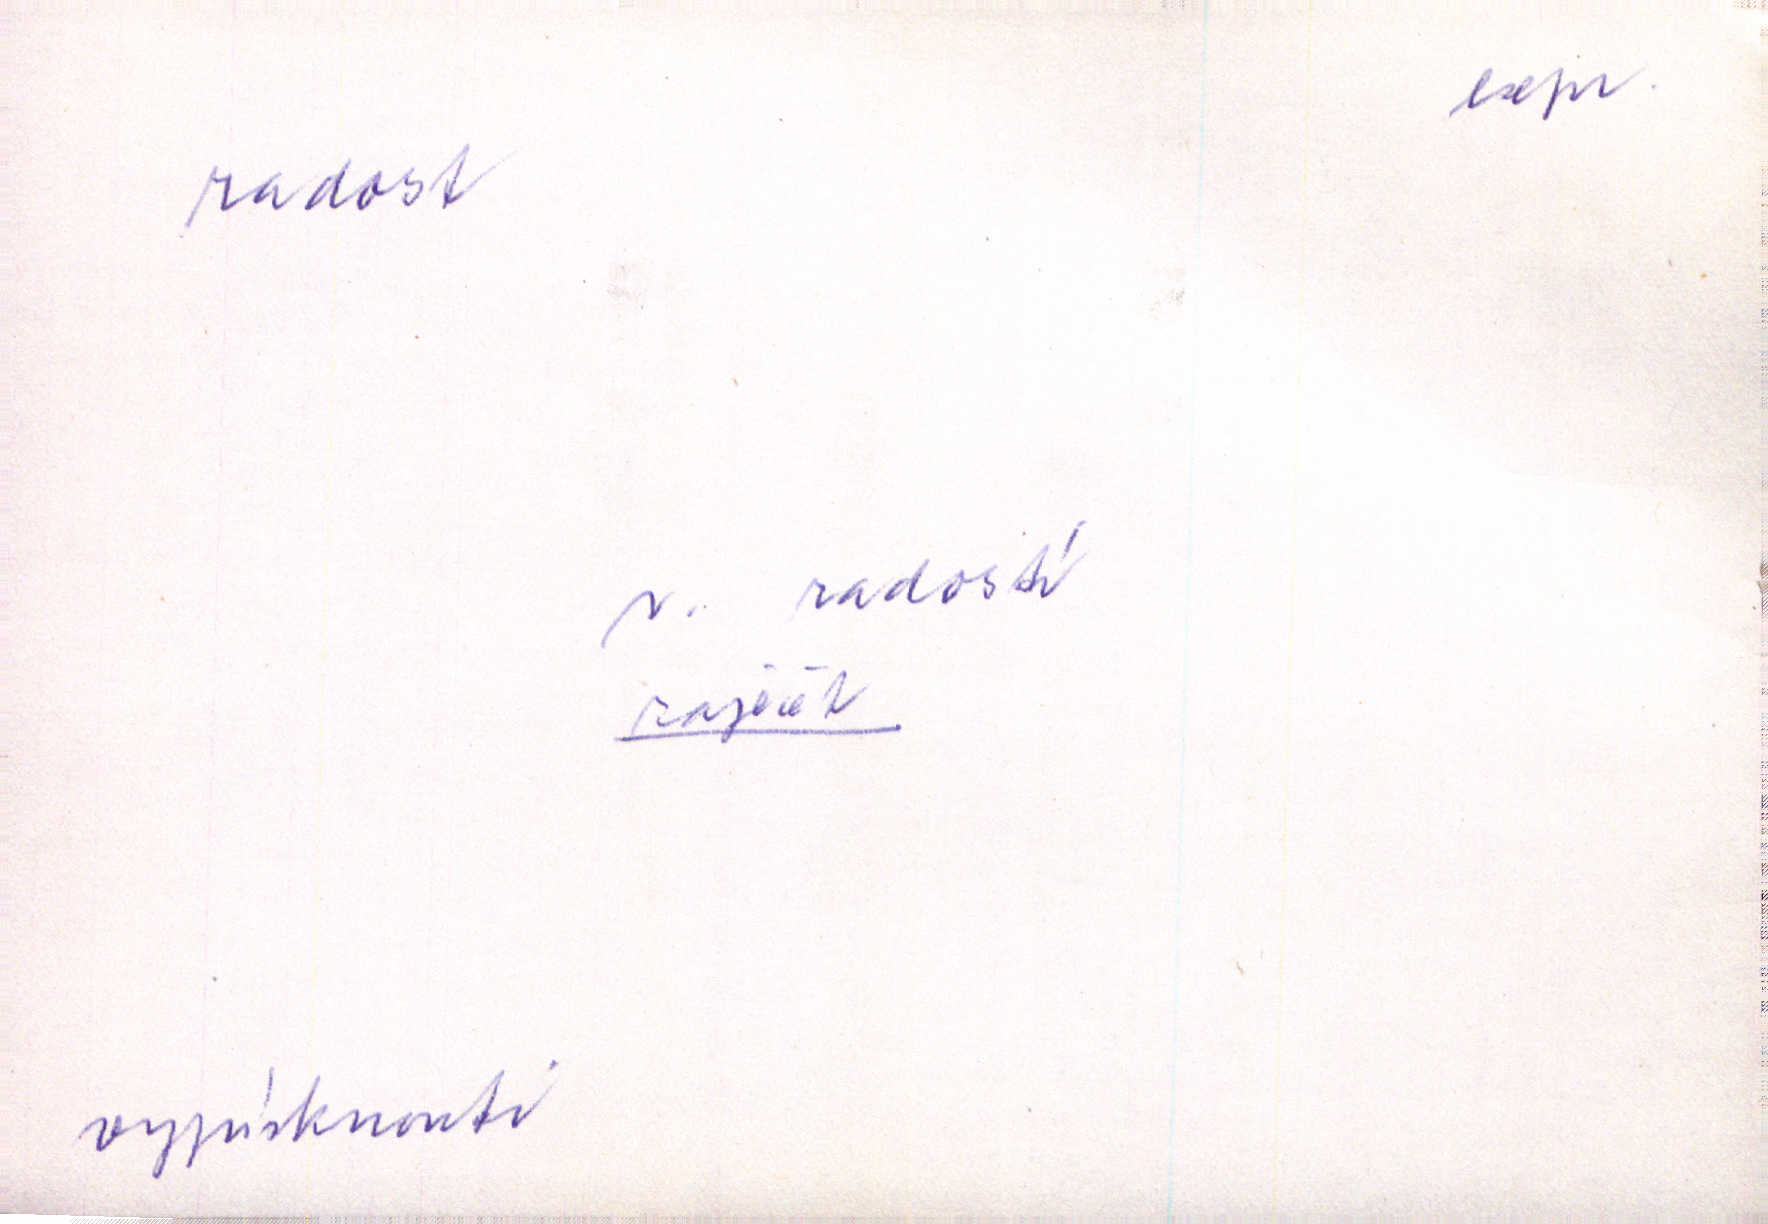 expr.
radost
v. radostí
vypísknouti